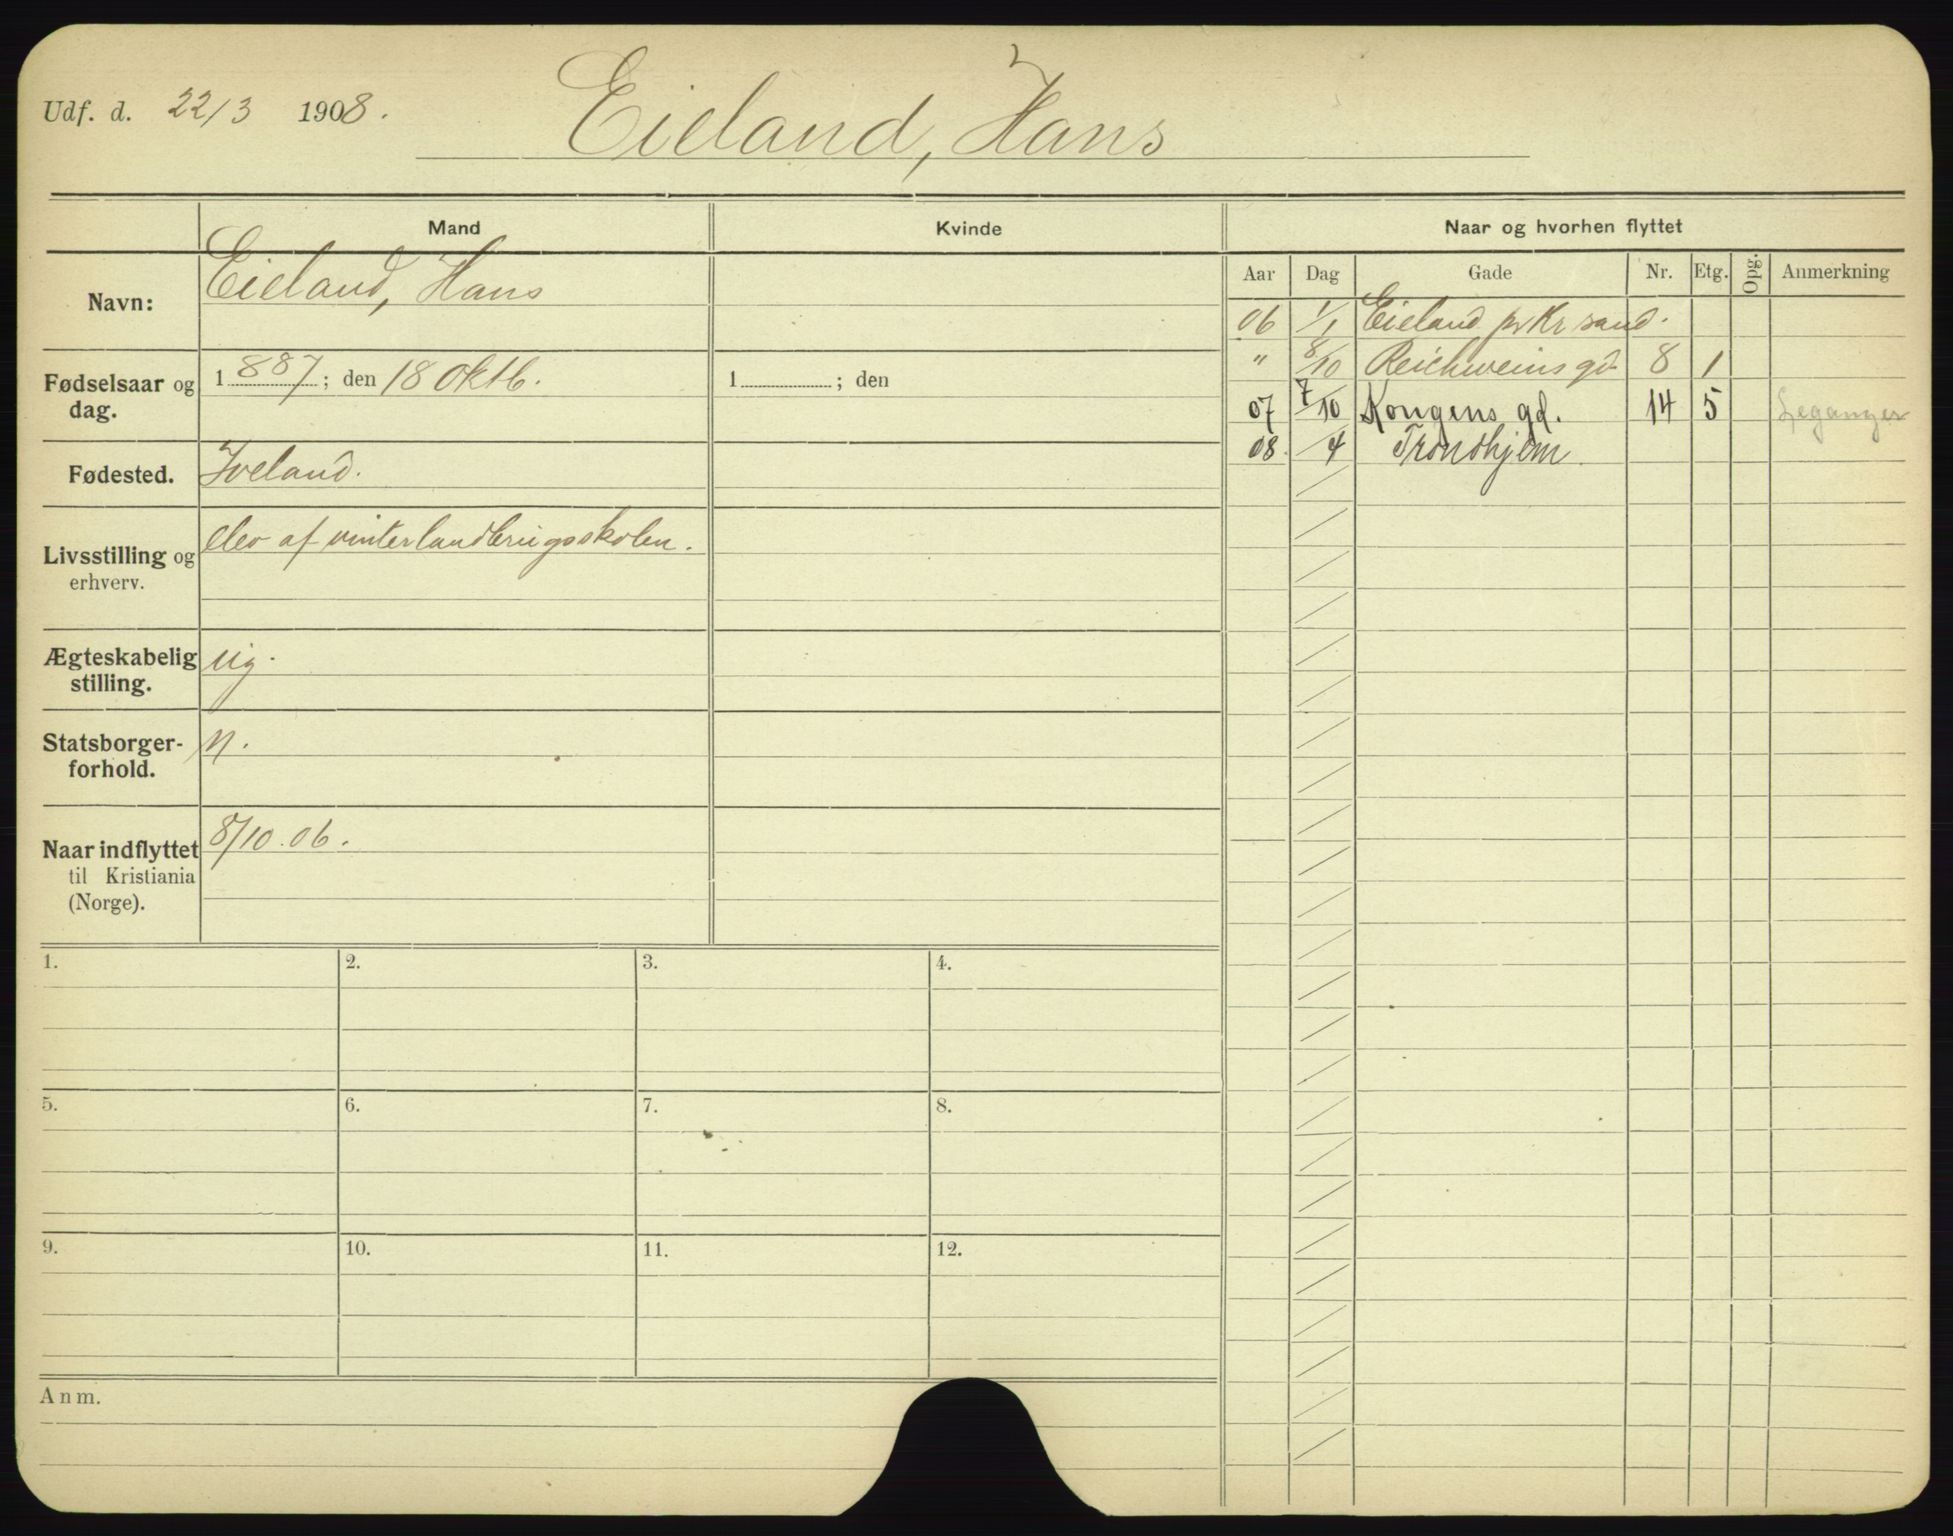 Udf. d. 22/3 1908.
Eieland, Hans
Mand
Kvinde
Naar og hvorhen flyttet
Navn: Eieland, Hans
Fødselsaar og dag. 1887; den 18 Oktb.
1 ; den
Fødested. Iveland.
Livsstilling og erhverv. elev af vinterlandbrugsskolen.
Ægteskabelig stilling. ug.
Statsborgerforhold. n.
Naar indflyttet til Kristiania (Norge). 8/10.06.
Aar Dag Gade Nr. Etg. Opg. Anmerkning
06 1/1 Eieland pr Kr sand.
" 8/10 Reichweins gd 8 1
07 7/10 Kongens gd. 14 5 Leganger
08. /4 Trondhjem
1. 2. 3. 4.
5. 6. 7. 8.
9. 10. 11. 12.
Anm.